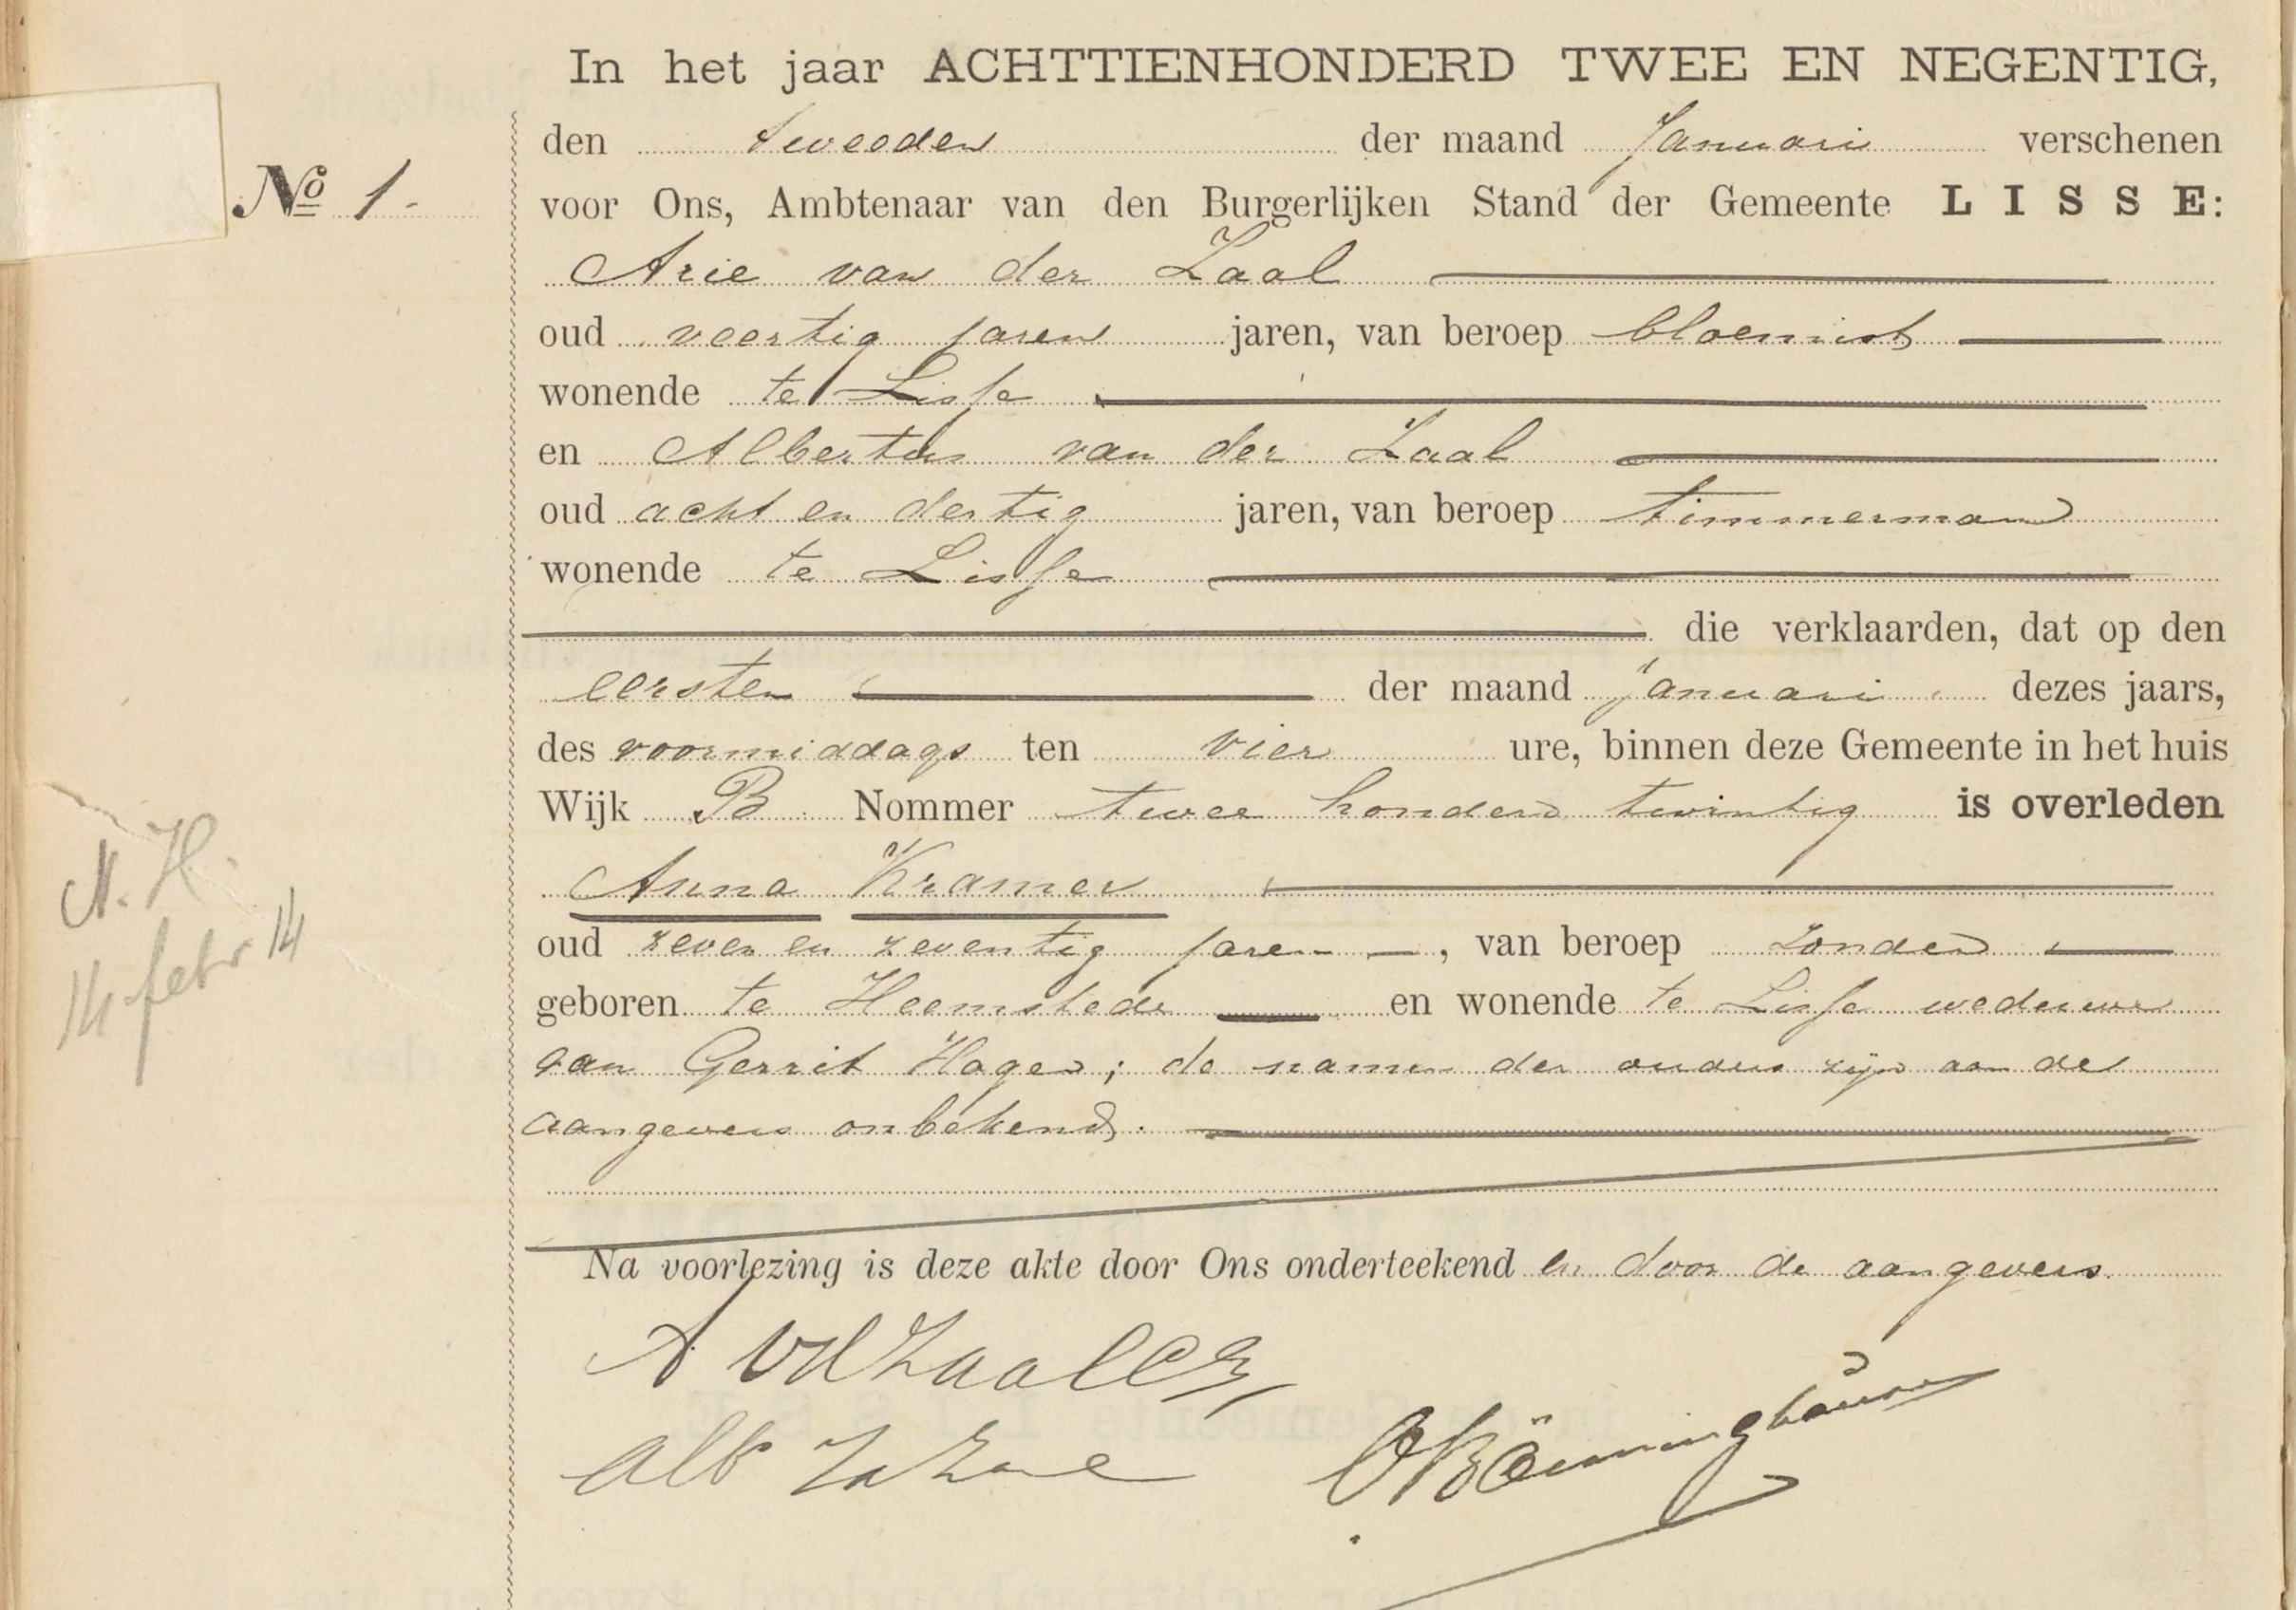 In het jaar ACHTTIENHONDERD TWEE EN NEGENTIG,
den tweeden der maand Januari verschenen
No 1.
voor Ons, Ambtenaar van den Burgerlijken Stand der Gemeente LISSE:
Arie van der Zaal
oud veertig jaren jaren, van beroep bloemist
wonende te Lisse
en Albertus van der Zaal
oud acht en dertig jaren, van beroep timmerman
wonende te Lisse
die verklaarden, dat op den
eersten der maand Januari dezes jaars,
des voormiddags ten vier ure, binnen deze Gemeente in het huis
Wijk B Nommer twee honderd twintig is overleden
Anna Kramer
oud zeven en zeventig jaren, van beroep zonder
geboren te Heemstede en wonende te Lisse weduwe
van Gerrit Hager; de namen der ouders zijn aan de
aangevers onbekend.
N.H.
14 febr 14
Na voorlezing is deze akte door Ons onderteekend en door de aangevers.
A vd Zaal
Alb